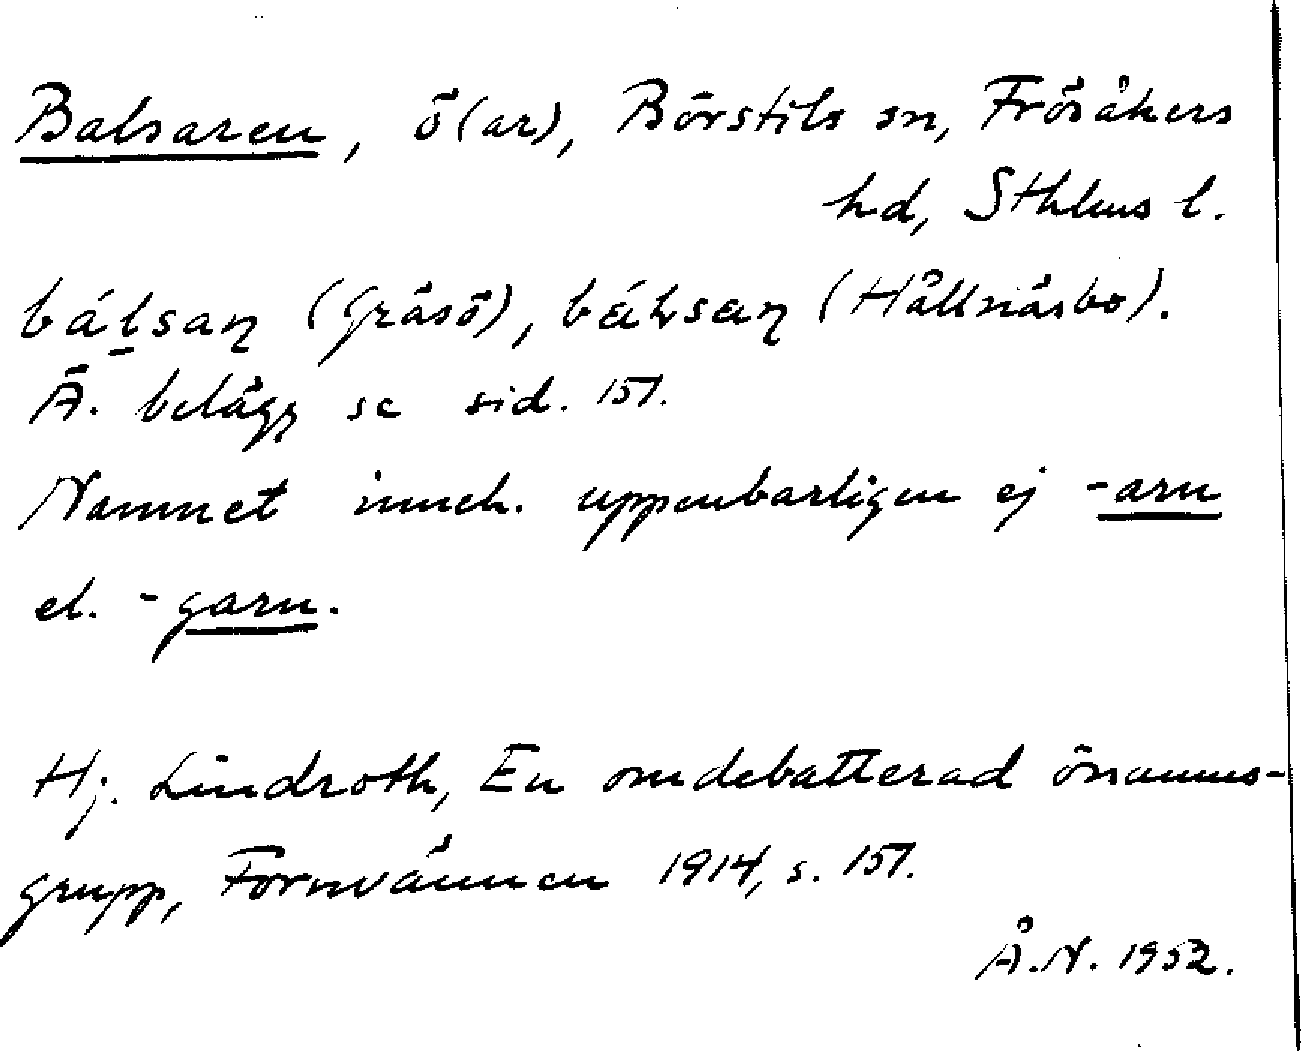 Balsaren, ö(ar), Börstils sn, Frösåkers
hd, Sthlms l.
(Gräsö), (Hållnäsbo).
Ä. belägg se sid. 151.
Namnet inneh. uppenbarligen ej -arn
el. -garn.
Hj. Lindroth, En omdebatterad önamns-
grupp, Fornvännen 1914, s. 151.
Å.N. 1952.